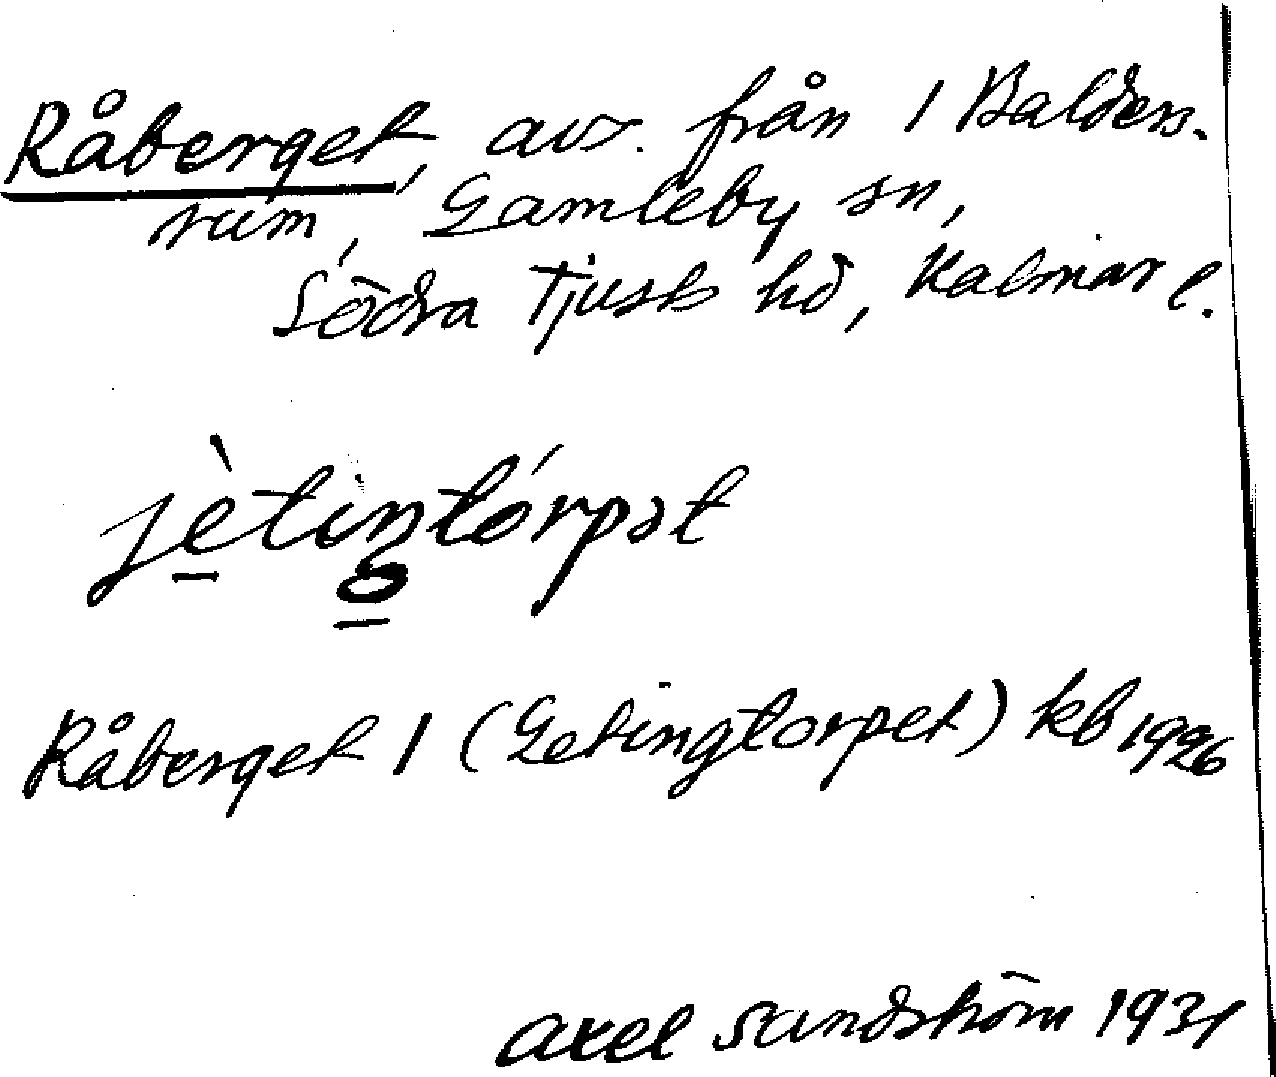 Råberget, avs. från 1 Balders-
rum, Gamleby sn,
Södra Tjusts hd, Kalmar l.
jètiŋtórpət
Råberget 1 (Getingtorpet) kb 1926
Axel Sandström 1931